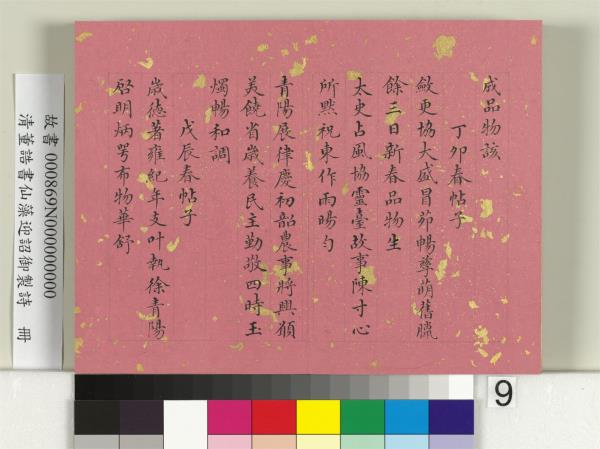 成品物該
丁卯春帖子
斂更協大盛冒茆暢孳萌舊臘
餘三日新春品物生
太史占風協靈臺故事陳寸心
所默祝東作雨暘勻
青陽展律慶初韶農事將興願
美饒省歲養民主勤敬四時玉
燭暢和調
戊辰春帖子
歲德著雍紀年支叶執徐青陽
啓明炳咢布物華舒
故書 000869N000000000
清董誥書仙藻迎詔御製詩 冊
9